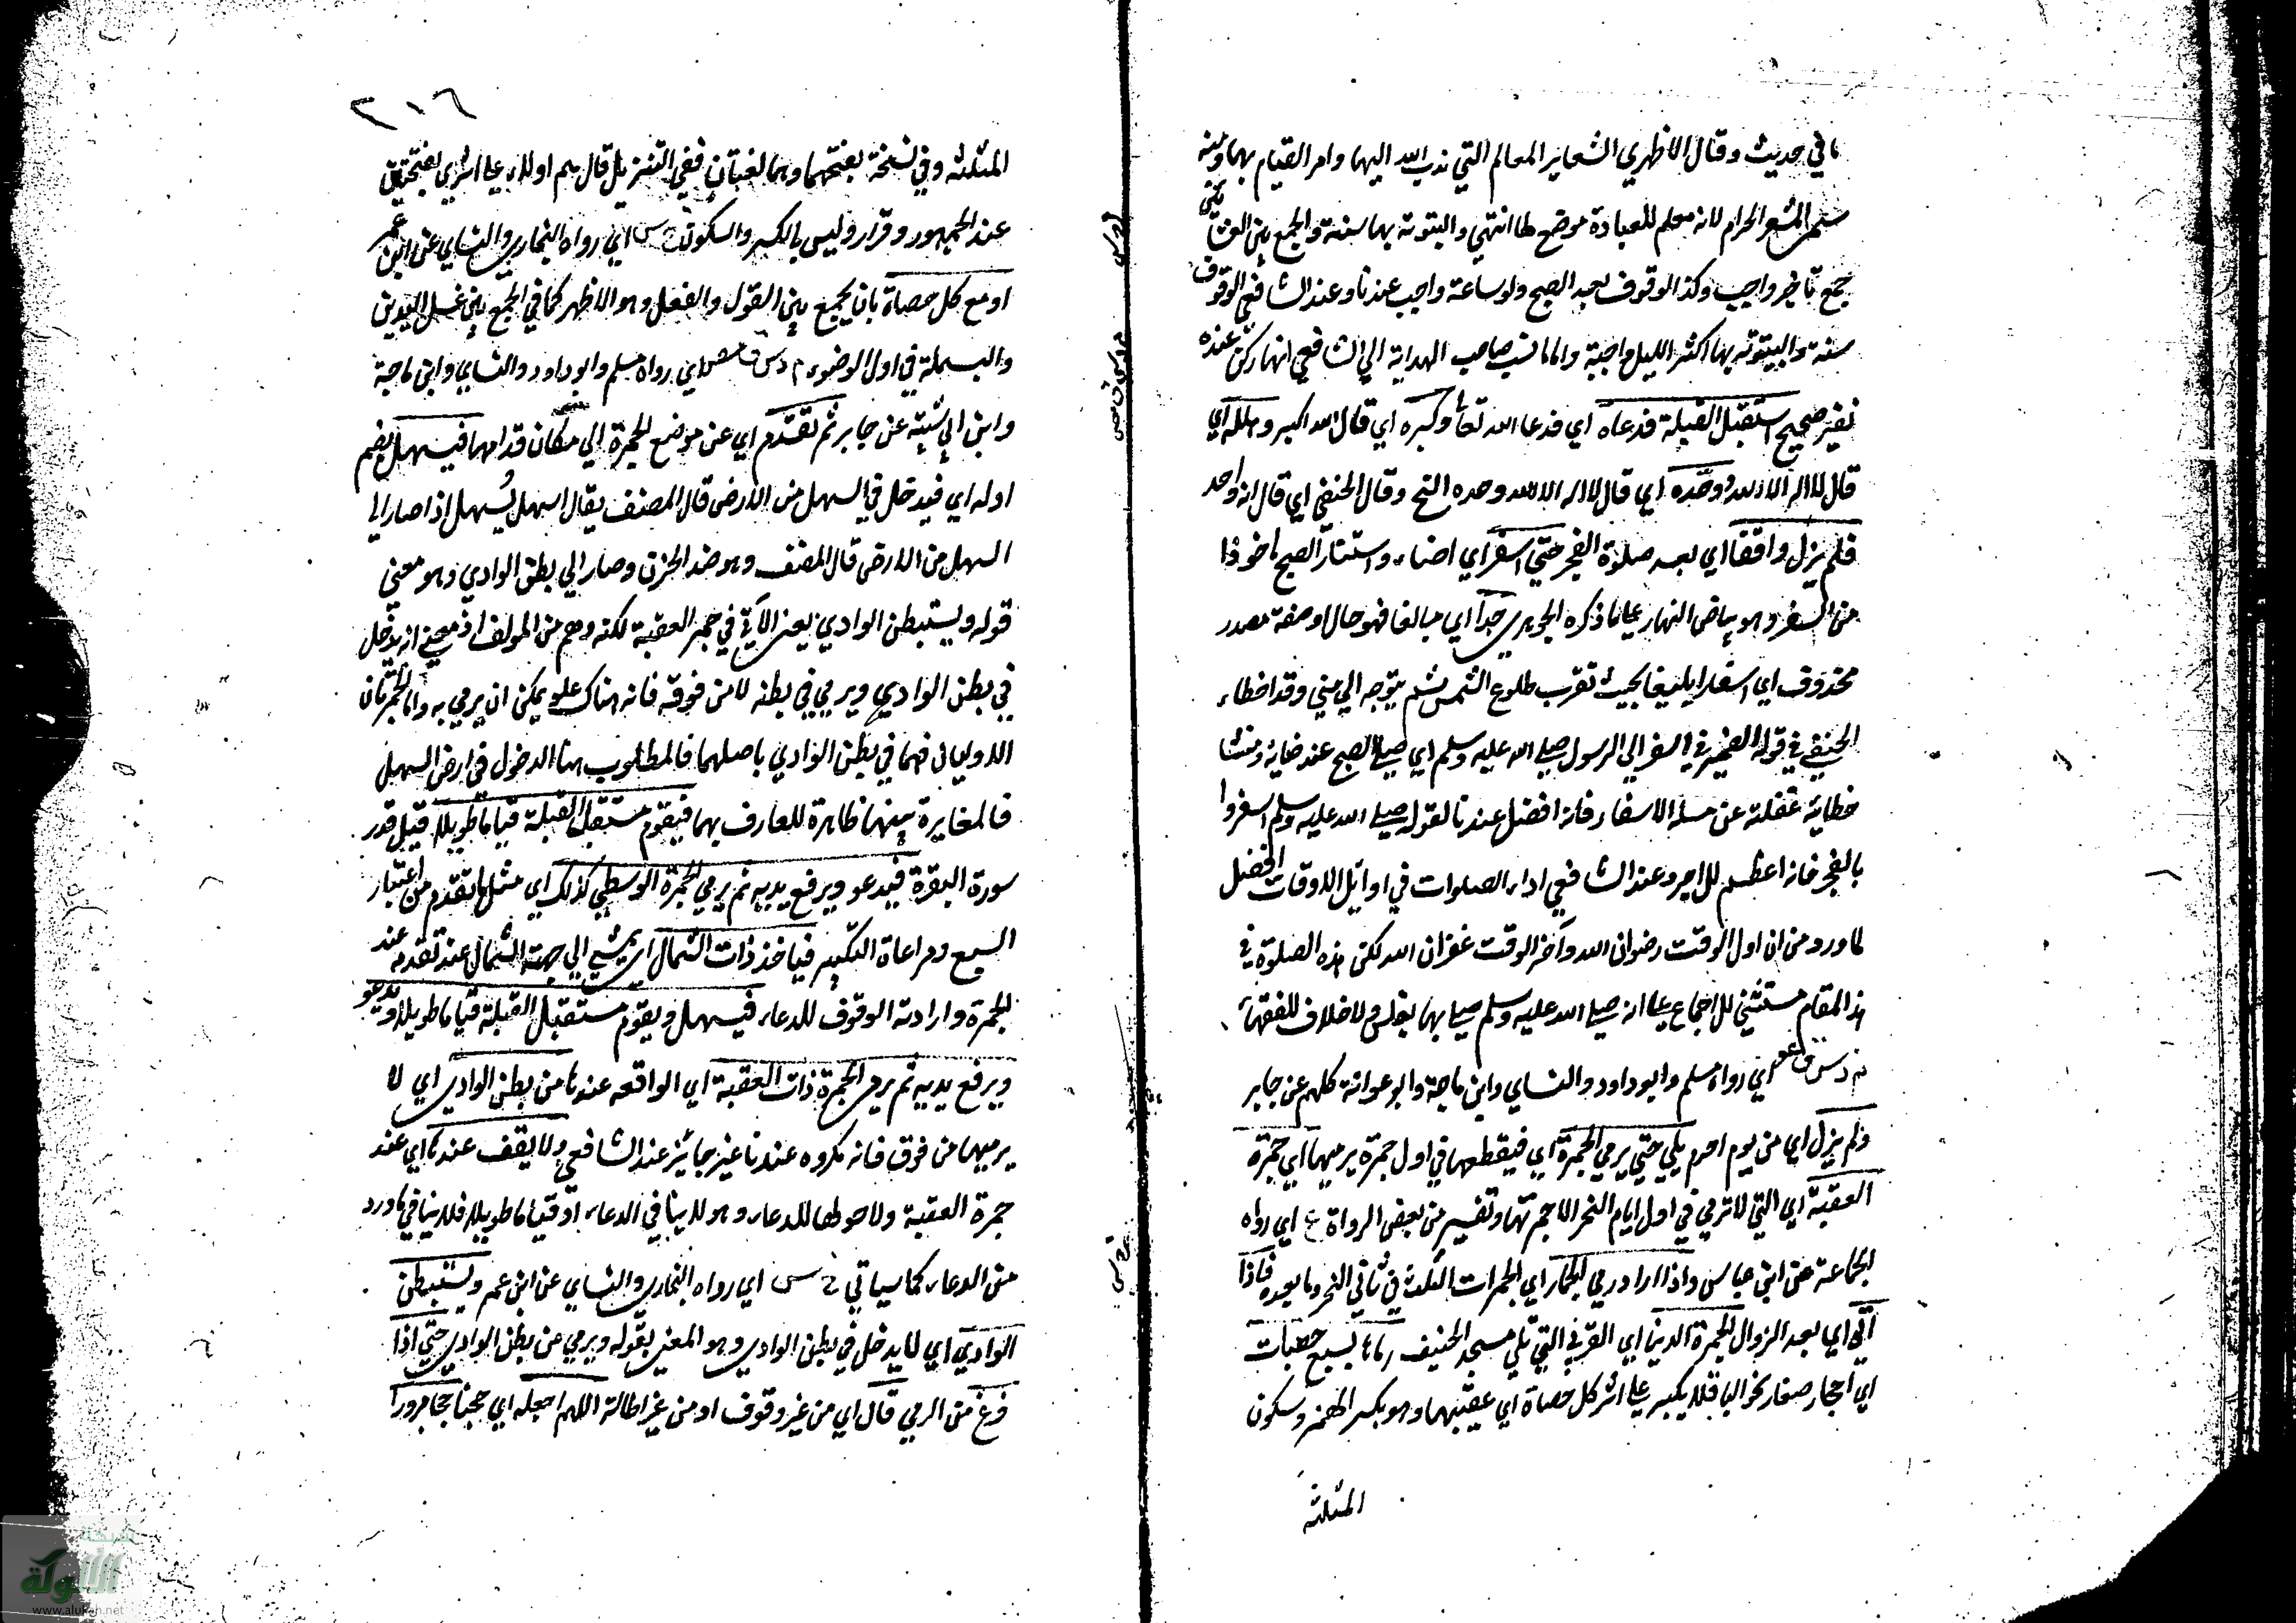 ما في حديث وقال الاظهري الشعاير المعالم التي ندب الله اليها وامر القيام بها ومنه
سمي المشعر الحرام لانه معلم للعبادة موضع لها انتهي والبيتوتة بها سنة والجمع بين العشائين
جمع تاخير واجب وكذا الوقوف بعد الصبح ولو ساعة واجب عندنا وعند الشافعي الوقوف
سنة والبيتوته بها اكثر الليل واجبة واما ما نسب صاحب الهداية الي الشافعي انها ركن عنده
فغير صحيح استقبل القبلة فدعاه اي فدعا الله تعالى وكبره اي قال الله اكبر وهلله اي
قال لا اله الا الله ووحده اي قال لا اله الا الله وحده الخ وقال الحنفي اي قال انه واحد
فلم يزل واقفا اي بعد صلوة الفجر حتي اسفر اي اضاء واستنار الصبح ماخوذا
من السفر وهو بياض النهار علي ما ذكره الجوهري جدا اي مبالغا فهو حال او صفة مصدر
محذوف اي اسفارا بليغا بحيث تقرب طلوع الشمس ثم يتوجه الي مني وقد اخطاء
الحنفي في قوله الضمير في اسفر الي الرسول صلي الله عليه وسلم اي صلي الصبح عند ضيائه ومنشا
خطائه غفلته عن مسلة الاسفار فانه افضل عندنا لقوله صلي الله عليه وسلم اسفروا
بالفجر فانه اعظم للاجر وعند الشافعي اداء الصلوات في اوائل الاوقات افضل
لما ورد من ان اول الوقت رضوان الله وآخر الوقت غفران الله لكن هذه الصلوة في
هذا المقام مستثني للاجماع علي انه صلي الله عليه وسلم صلي بها بغلس ولا خلاف للفقهاء
م د س ق عو اي رواه مسلم وابو داود والنساي وابن ماجة وابو عوانة كلهم عن جابر
ولم يزل اي من يوم احرم يلبي حتي يرمي الجمرة اي فيقطعها في اول جمرة يرميها اي جمرة
العقبة اي التي لا ترمي في اول ايام النحر الا جمرتها وتفسير من بعض الرواة ع اي رواه
الجماعة عن ابن عباس واذا اراد رمي الجمار اي الجمرات الثلاث في ثاني النحر وما بعده فاذا
اتي اي بعد الزوال الجمرة الدنيا اي القربي التي تلي مسجد الخيف رماها بسبع حصيات
اي احجار صغار نحو الباقلا يكبر علي اثر كل حصاة اي عقبها وهو بكسر الهمز وسكون
المثلثه
٢١٦
المثلثه وفي نسخة بفتحهما وهما لغتان ففي التنزيل قال هم اولاء علي اثري بفتحتين
عند الجمهور وقراء رويس بالكسر والسكون خ س اي رواه البخاري والنساي عن ابن عمر
او مع كل حصاة بان يجمع بين القول والفعل وهو الاظهر كما في الجمع بين غسل اليدين
والبسملة في اول الوضوء م د س ق مص اي رواه مسلم وابو داود والنساي وابن ماجة
وابن ابي شيبة عن جابر ثم تقدم اي عن موضع الجمرة الي مكان قدامها فيسهل بضم
اوله اي فيدخل في السهل من الارض قال المصنف يقال اسهل يسهل اذا صار الي
السهل من الارض قال المصنف وهو ضد الحزن وصار الي بطن الوادي وهو معني
قوله ويستبطن الوادي يعني الآتي في جمر العقبة لكنه وهم من المولف اذ معني انه يدخل
في بطن الوادي ويرمي في بطنه لا من فوقه فانه هناك علو يمكن ان يرمي به واما الجمرتان
الاوليان فهما في بطن الوادي باصلهما فالمطلوب هنا الدخول في ارض السهل
فالمغايرة بينهما ظاهرة للعارف بهما فيقوم مستقبل القبلة قياما طويلا قيل قدر
سورة البقرة فيدعو ويرفع يديه ثم يرمي الجمرة الوسطي كذلك اي مثل ما تقدم من اعتبار
السبع ومراعاة التكبير فياخذ ذات الشمال اي يمشي الي جهة الشمال عند تقدمه عند
الجمرة وارادته الوقوف للدعاء فيسهل ويقوم مستقبل القبلة قياما طويلا ويدعو
ويرفع يديه ثم يرمي الجمرة ذات العقبة اي الواقعه عندها من بطن الوادي اي لا
يرميها من فوق فانه مكروه عندنا غير جائز عند الشافعي ولا يقف عندها اي عند
جمرة العقبة ولا حولها للدعاء وهو لا ينافي الدعاء او قياما طويلا فلا ينافي ما ورد
من الدعاء كما سياتي خ س اي رواه البخاري والنساي عن ابن عمر ويستبطن
الوادي اي لا يدخل في بطن الوادي وهو المعني بقوله ويرمي من بطن الوادي حتي اذا
فرغ من الرمي قال اي من غير وقوف او من غير اطالة اللهم اجعله اي حجنا حجا مبرورا
شبكة
الألوكة
www.alukah.net